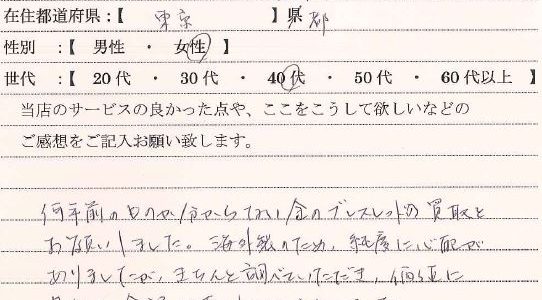 在住都道府県：【 東京 】県 都
性別 ：【 男性 ・ 女性 】
世代 ：【 20代 ・ 30代 ・ 40代 ・ 50代 ・ 60代以上 】
当店のサービスの良かった点や、ここをこうして欲しいなどの
ご感想をご記入お願い致します。
何年前のものか分からない金のブレスレットの買取を
お願いしました。海外製のため、純度に心配が
ありましたが、きちんと調べていただき、価値に